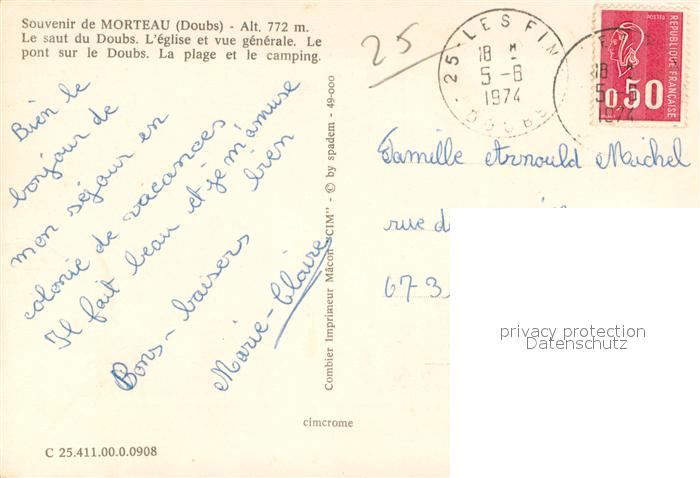 Souvenir de MORTEAU (Doubs) - Alt. 772 m.
Le saut du Doubs. L'église et vue générale. Le
pont sur le Doubs. La plage et le camping.
Bien le
bonjour de
mon séjour en
colonie de vacances
Il fait beau et je m'amuse
bien
Bons baisers
Marie-Claire
C 25.411.00.0.0908
Combier Imprimeur Mâcon "CIM" - © by spadem - 49-000
cimcrome
25
25 - LES FINS
18 H
5-8
1974
DOUBS
18
5-8
1974
POSTES
REPUBLIQUE FRANÇAISE
0.50
Famille Arnould Michel
rue
673
privacy protection
Datenschutz